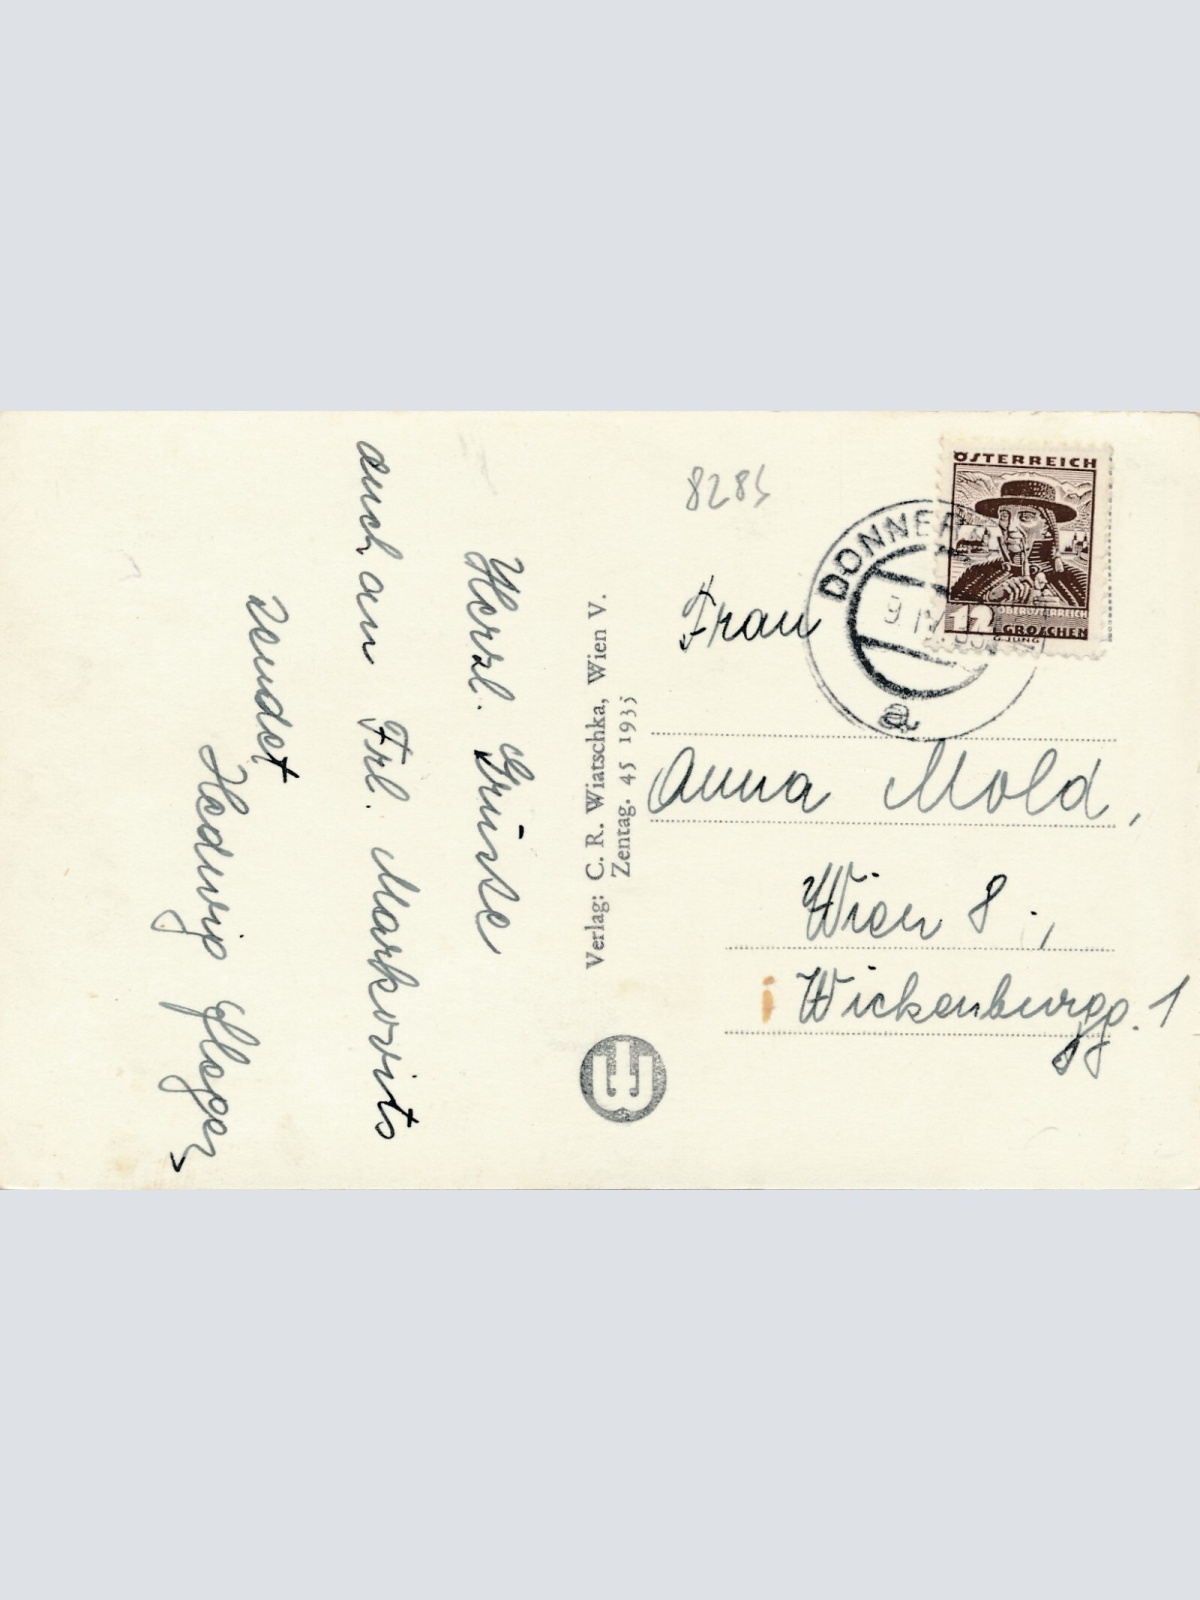 Herzl. Grüsse
auch an Frl. Markovits
sendet
Hedwig
Verlag: C. R. Wiatschka, Wien V.
Zentag. 45 1935
8285
ÖSTERREICH
OBERÖSTERREICH
12 GROSCHEN
DONNER
9. IV.
a
Frau
Anna Mold,
Wien 8.,
Wickenburgg. 1